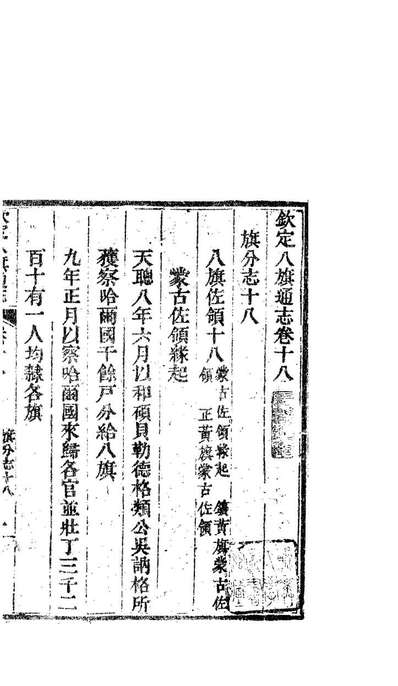 欽定八旗通志卷十八
旗分志十八
八旗佐領十八 蒙古佐領緣起 鑲黃旗蒙古佐領 正黃旗蒙古佐領
蒙古佐領緣起
天聰八年六月以和碩貝勒德格類公吳訥格所
獲察哈爾國千餘戶分給八旗
九年正月以察哈爾國來歸各官並壯丁三千二
百十有一人均隸各旗
旗分志十八